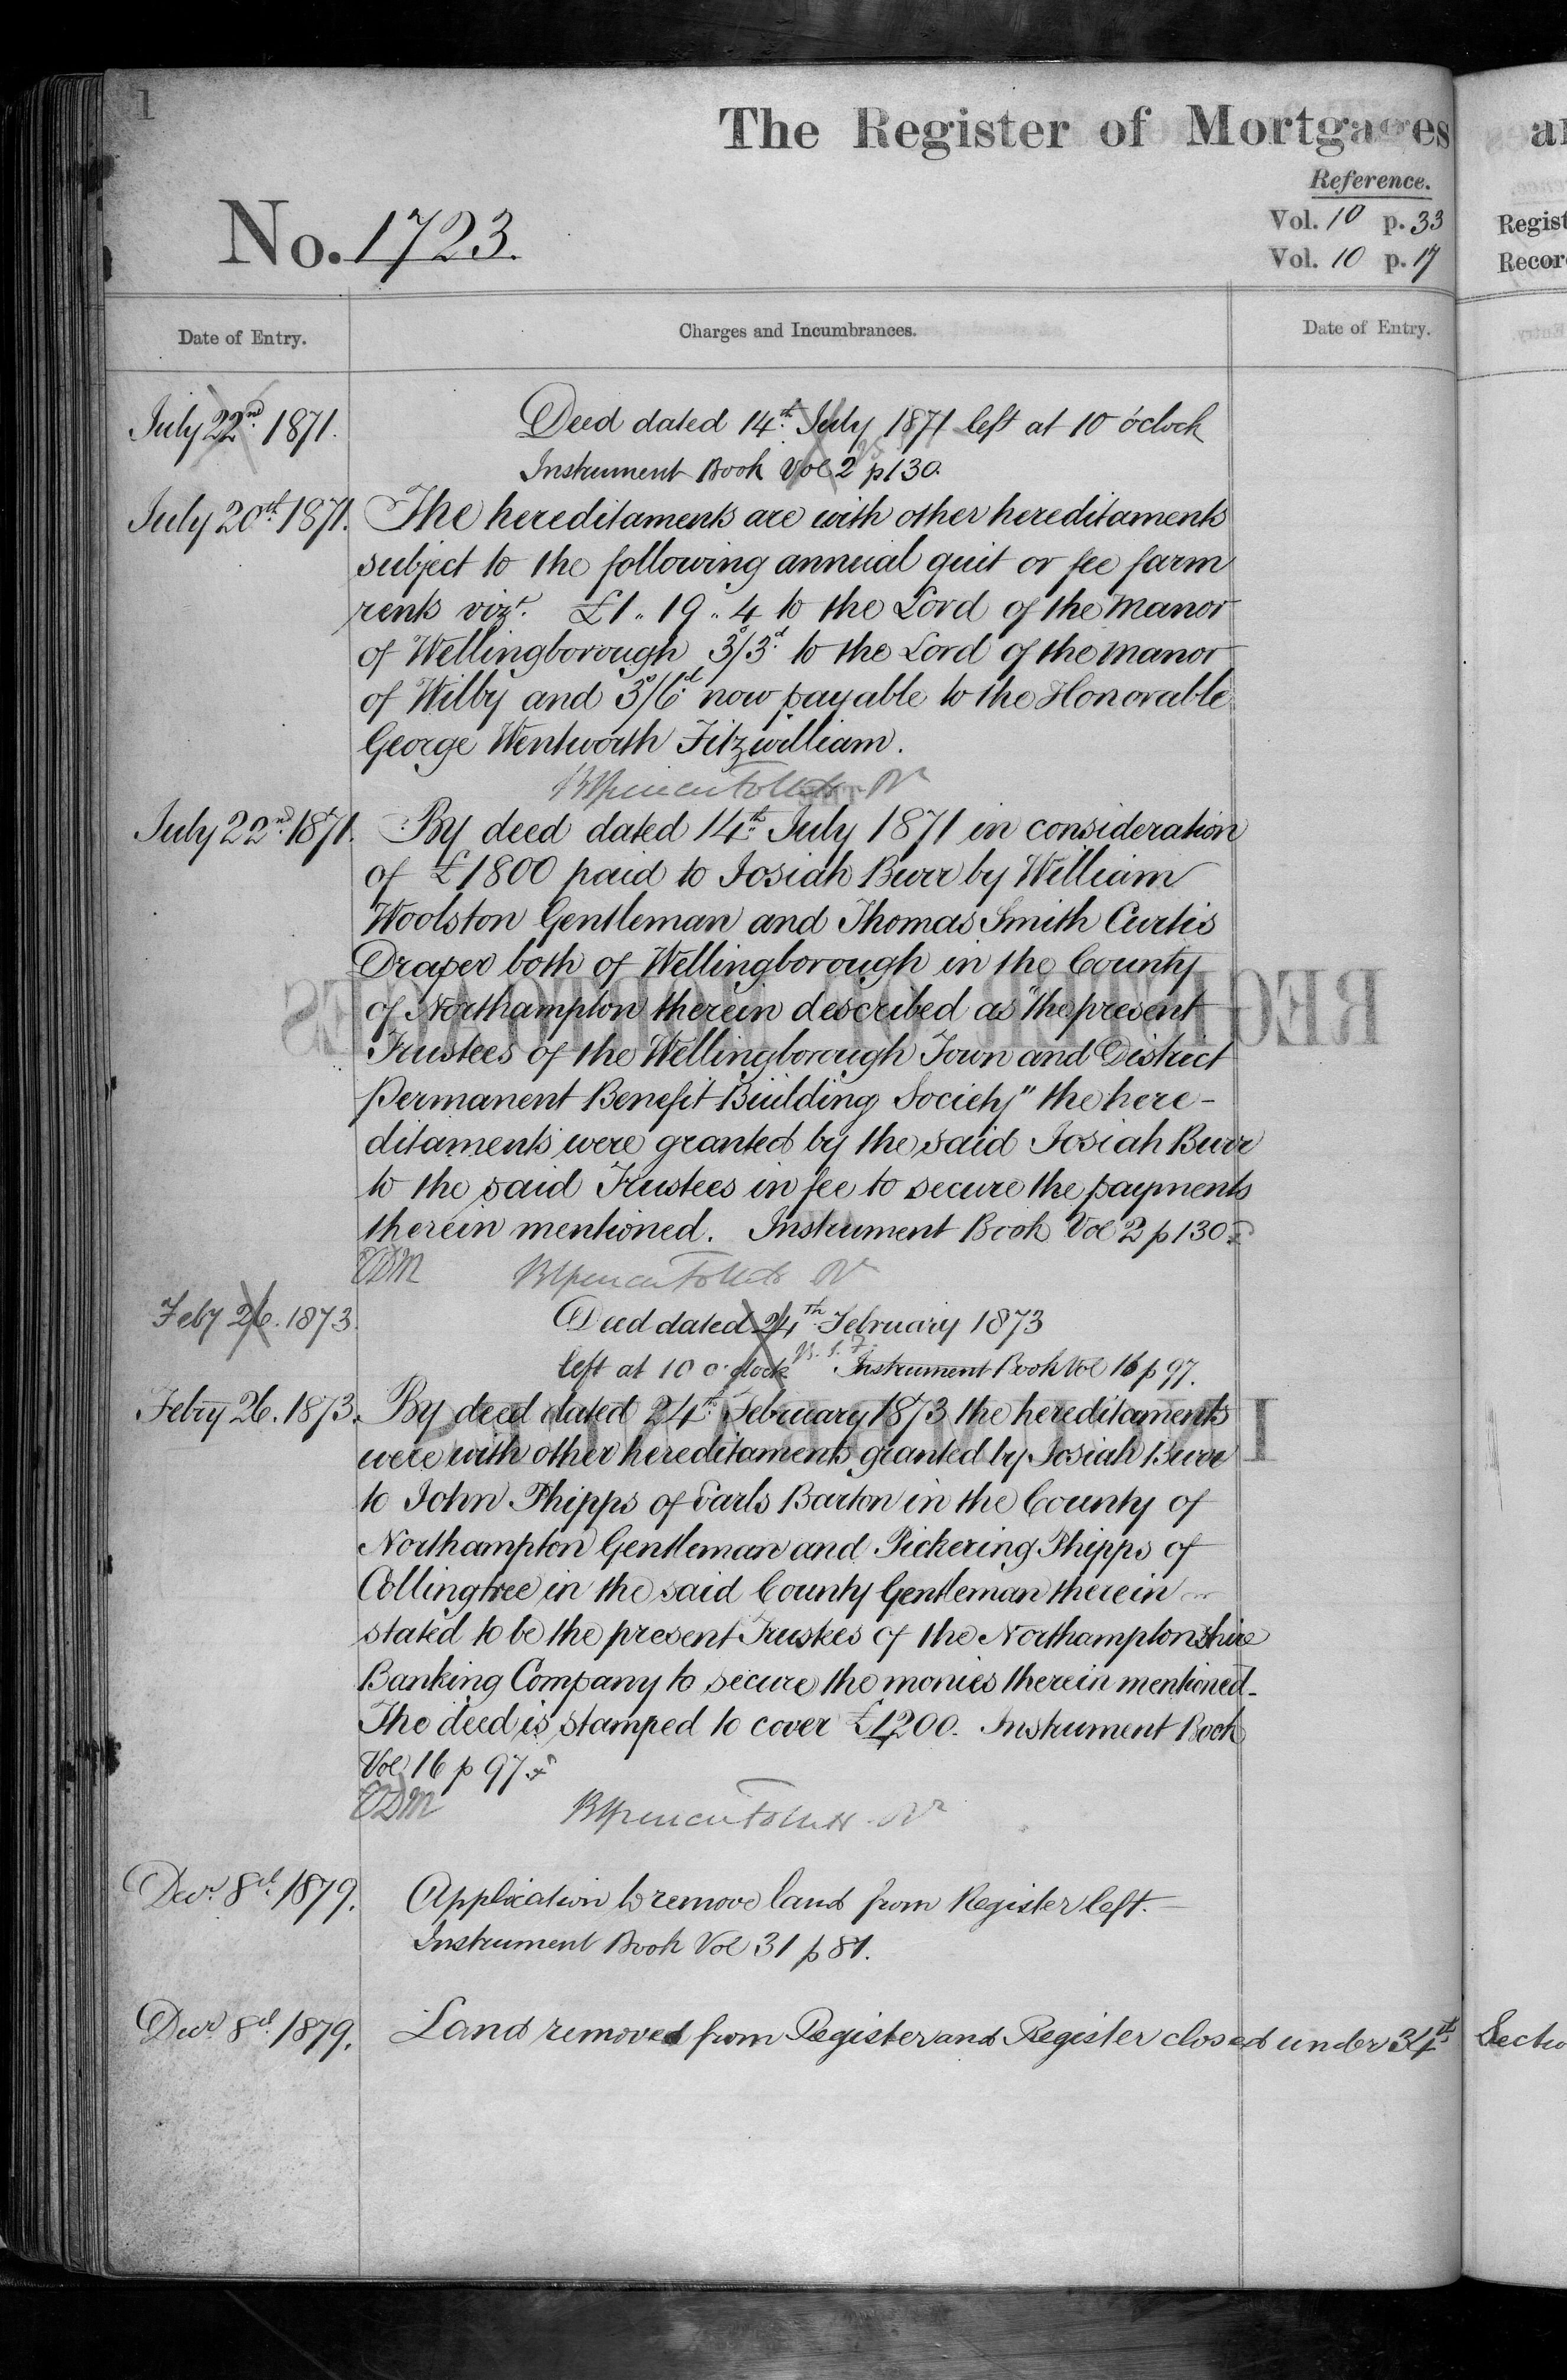 1
The Register of Mortgages
Reference.
No. 1723.
Vol. 10 p. 33
Vol. 10 p. 17
Date of Entry.
Charges and Incumbrances.
Date of Entry.
July 22nd 1871.
Deed dated 14th July 1871 left at 10 o'clock
Instrument Book Vol 2 p130.
July 20th 1871.
The hereditaments are with other hereditaments
subject to the following annual quit or fee farm
rents vizt. £1 .. 19 .. 4 to the Lord of the Manor
of Wellingborough 3s/3d. to the Lord of the manor
of Wilby and 3s/6d. now payable to the Honorable
George Wentworth Fitzwilliam.
July 22nd 1871.
By deed dated 14th July 1871 in consideration
of £1800 paid to Josiah Burr by William
Woolston Gentleman and Thomas Smith Curtis
Draper both of Wellingborough in the County
of Northampton therein described as "the present
Trustees of the Wellingborough Town and District
Permanent Benefit Building Society" the here-
ditaments were granted by the said Josiah Burr
to the said Trustees in fee to secure the payments
therein mentioned. Instrument Book Vol 2 p 130
Feby 26. 1873.
Deed dated 24th February 1873
left at 10 o'clock Instrument Book Vol 16 p 97.
Febry 26. 1873.
By deed dated 24th February 1873 the hereditaments
were with other hereditaments granted by Josiah Burr
to John Phipps of Earls Barton in the County of
Northampton Gentleman and Pickering Phipps of
Collingtree in the said County Gentleman therein
stated to be the present Trustees of the Northamptonshire
Banking Company to secure the monies therein mentioned.
The deed is stamped to cover £1200. Instrument Book
Vol 16 p 97.
Decr. 8th 1879.
Application to remove land from Register left.
Instrument Book Vol 31 p 81.
Decr. 8th 1879.
Land removed from Register and Register closed under 34th Sectio
Regist
Recor